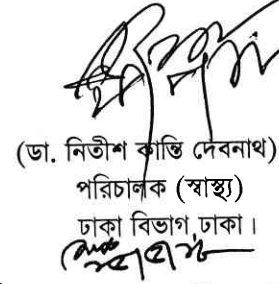 (ডা. নিতীশ কান্তি দেবনাথ)
পরিচালক (স্বাস্থ্য)
ঢাকা বিভাগ,ঢাকা।